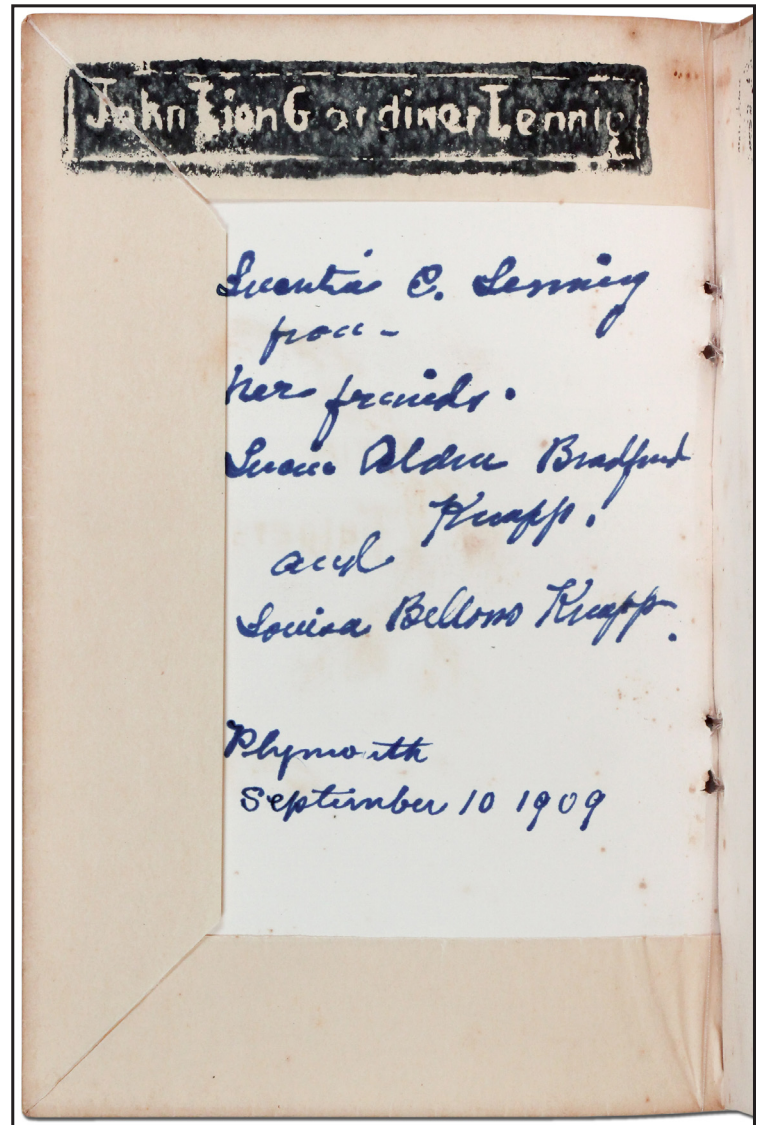 John Lion Gardiner Lennig
C. Lennig
from -
her friends.
Alden Bradford
Knapp.
and
Louisa Bellows Knapp.
Plymouth
September 10 1909